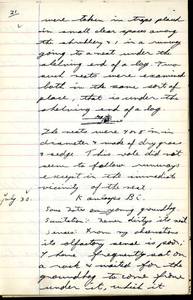 31
were taken in traps placed
in small clear spaces among
the shrubbery & 1 in a runway
going to a nest under the
shelving end of a log. Two
such nests were examined
both in the same sort of
place, that is under the
shelving end of a log.
The nests were 4 or 5 in in
diameter & made of dry grass
& sedge. This vole did not
seem to follow runways
except in the immediate
vicinity of the nest.
July 30. Kamloops B.C.
Some notes on young groundhog
Sanitation: Never dirtys its nest
Senses: From my observations
its olfactory sense is poor.
I have frequently sat on
a rock & waited for the
groundhog to come from
under it, which it